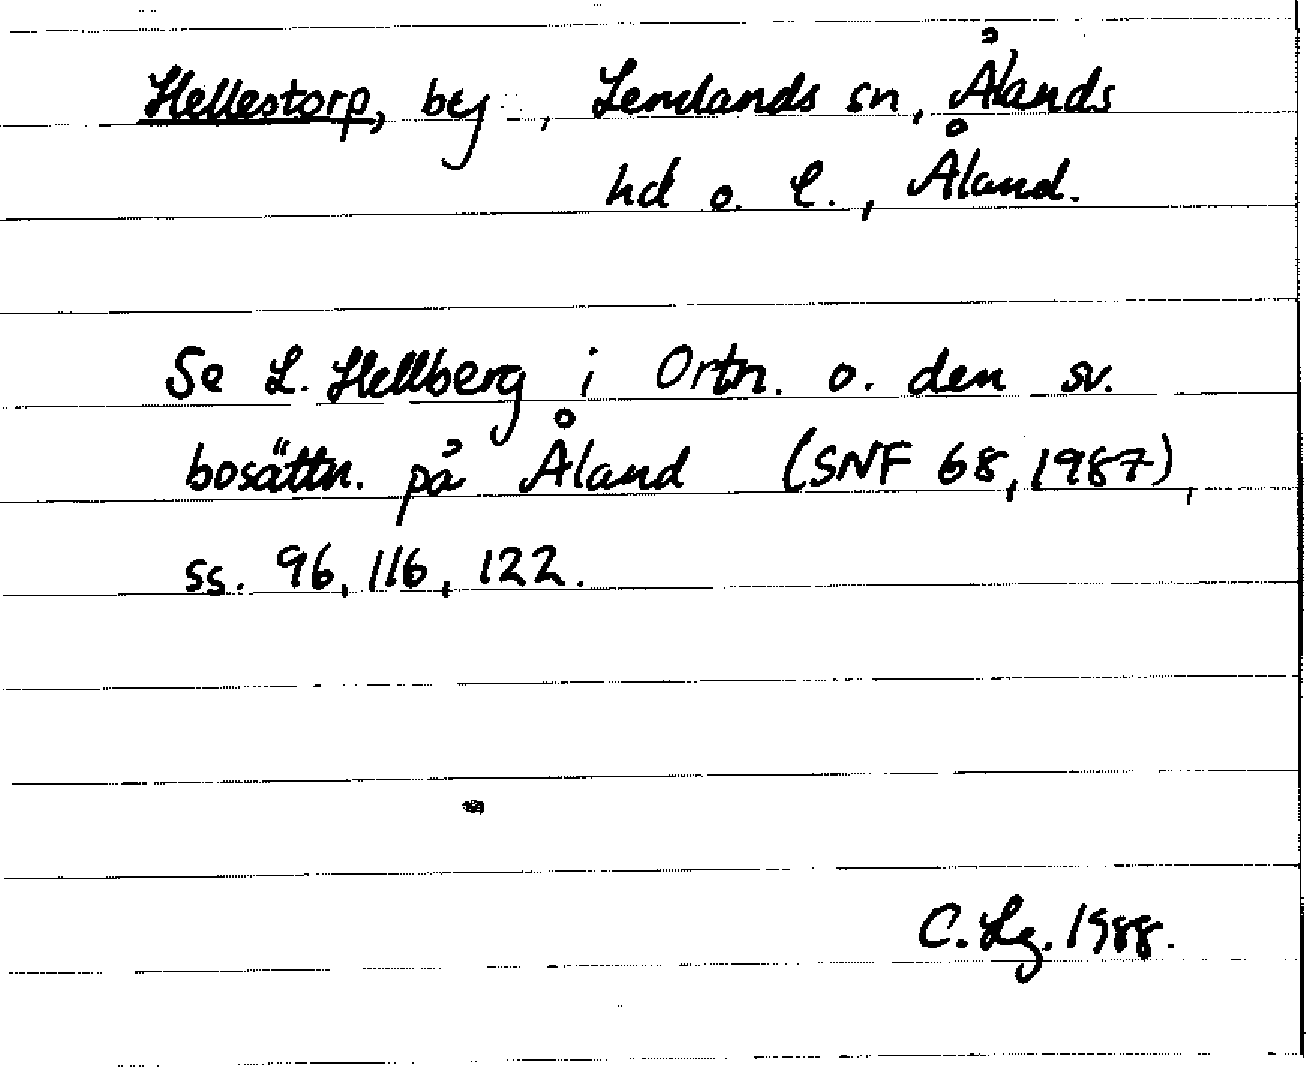 Hellestorp, by, Lemlands sn, Ålands
hd o. l., Åland.
Se L. Hellberg i Ortn. o. den sv.
bosättn. på Åland (SNF 68, 1987),
ss. 96, 116, 122.
C. Lg. 1988.